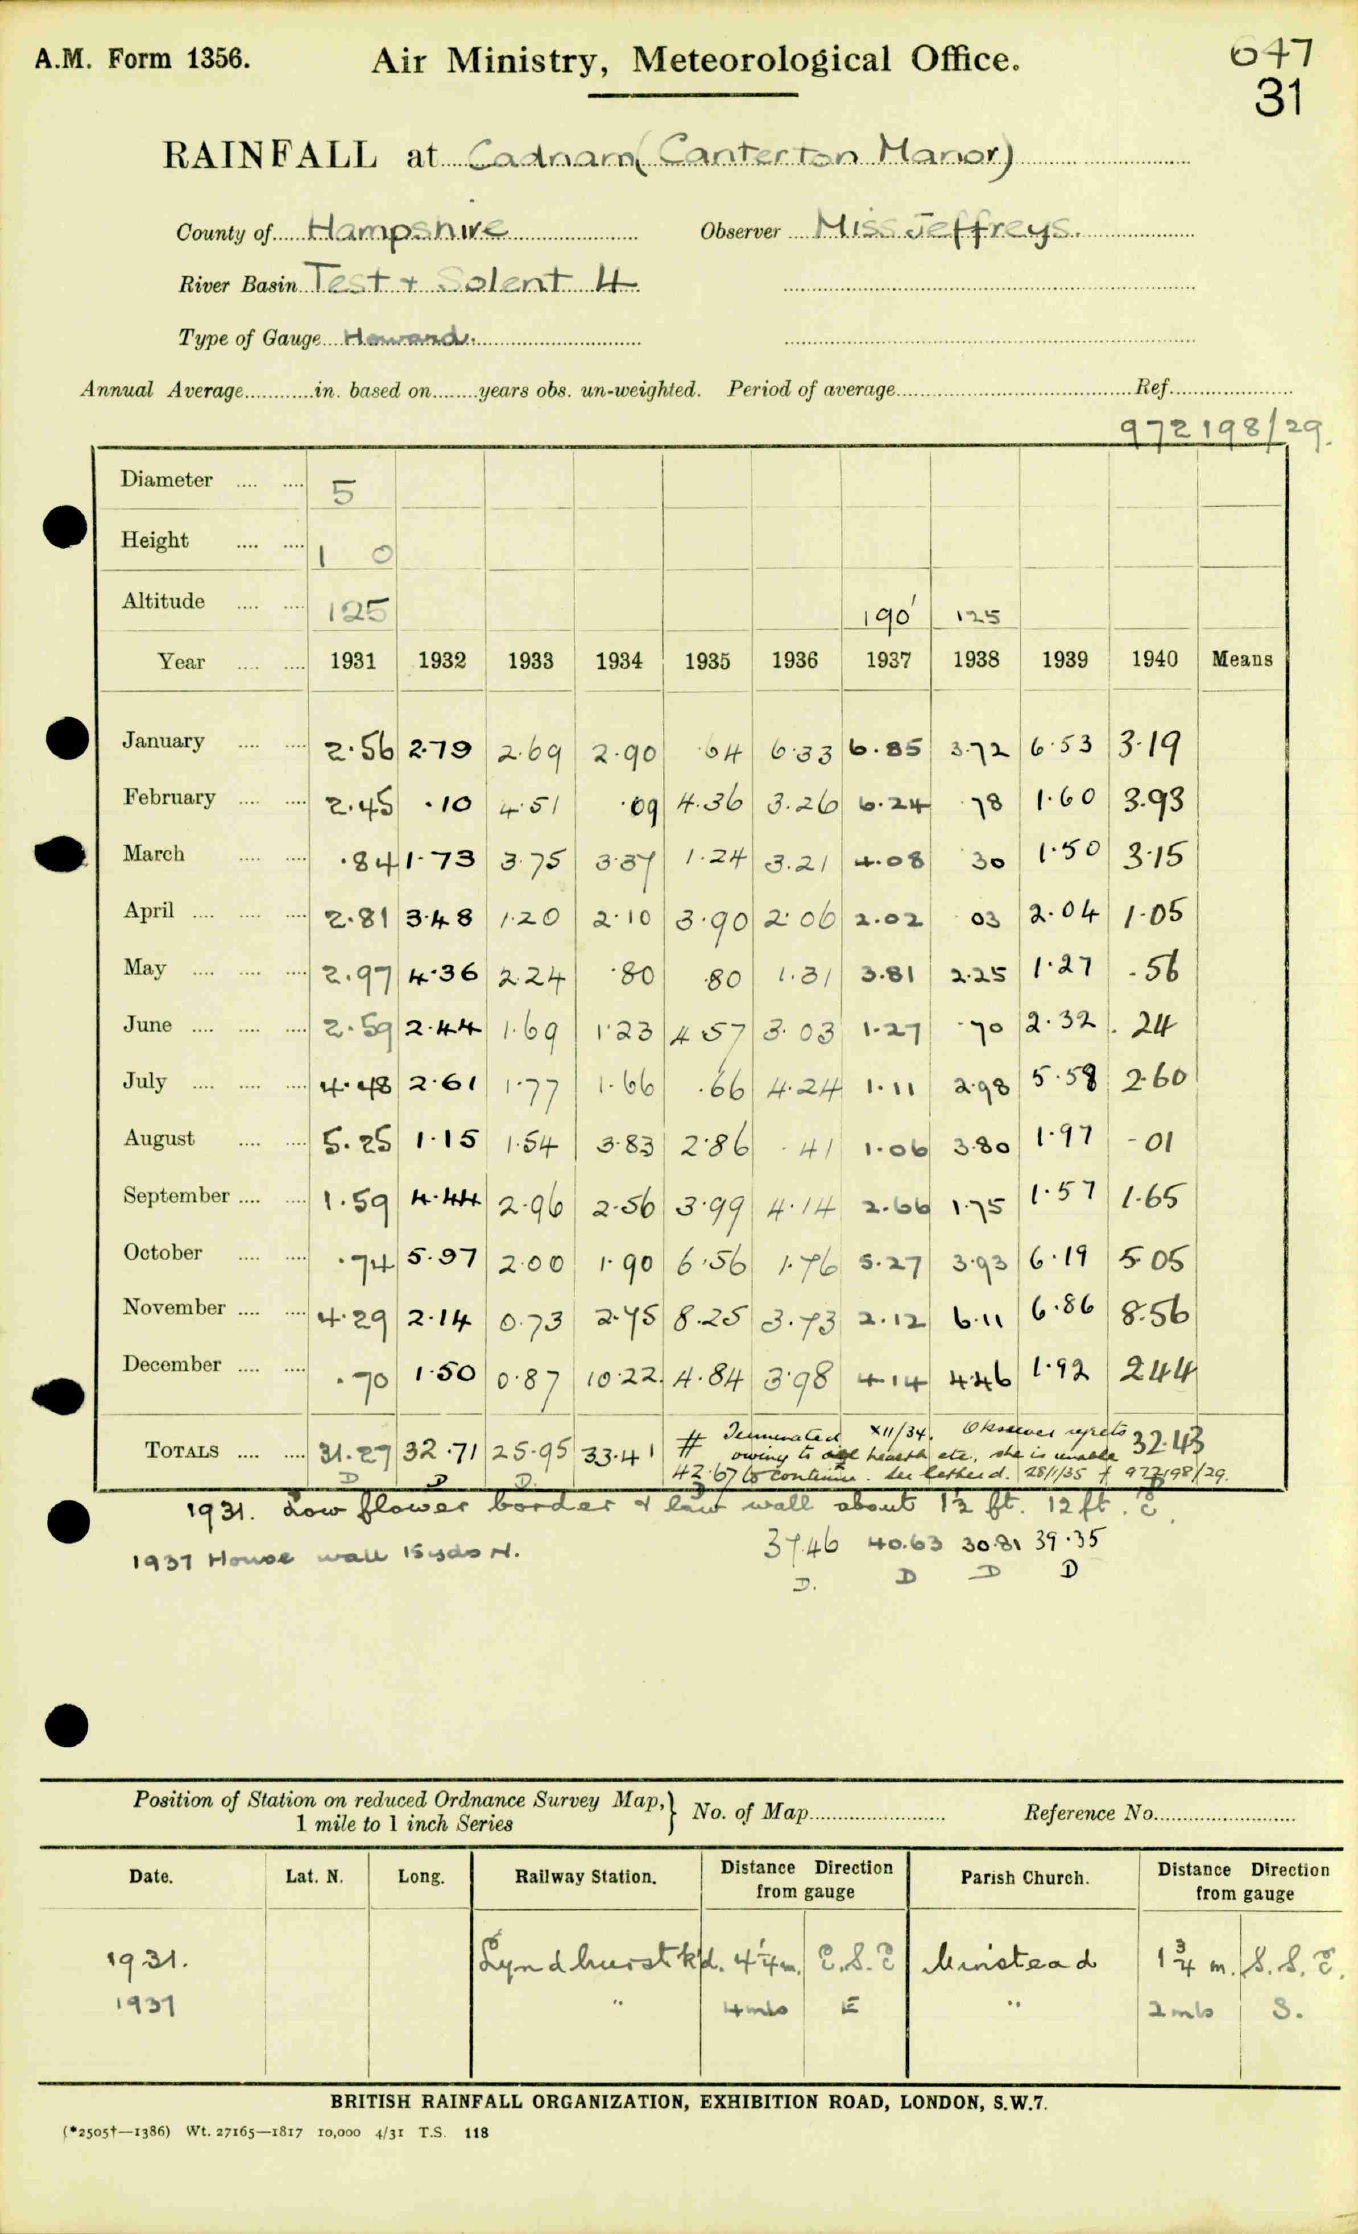 A.M. Form 1356. Air Ministry, Meteorological Office. 647
31
RAINFALL at Cadnam (Canterton Manor)
County of Hampshire Observer Miss Jeffreys.
River Basin Test + Solent 4
Type of Gauge Howard.
Annual Average in. based on years obs. un-weighted. Period of average Ref.
972198/29.
Diameter 5
Height 1 0
Altitude 125 190' 125
Year 1931 1932 1933 1934 1935 1936 1937 1938 1939 1940 Means
January 2.56 2.79 2.69 2.90 .64 6.33 6.85 3.72 6.53 3.19
February 2.45 .10 4.51 .09 4.36 3.26 6.24 .78 1.60 3.93
March .84 1.73 3.75 3.37 1.24 3.21 4.08 30 1.50 3.15
April 2.81 3.48 1.20 2.10 3.90 2.06 2.02 03 2.04 1.05
May 2.97 4.36 2.24 .80 .80 1.31 3.81 2.25 1.27 .56
June 2.59 2.44 1.69 1.23 4.57 3.03 1.27 .70 2.32 .24
July 4.48 2.61 1.77 1.66 .66 4.24 1.11 2.98 5.58 2.60
August 5.25 1.15 1.54 3.83 2.86 .41 1.06 3.80 1.97 .01
September 1.59 4.44 2.96 2.56 3.99 4.14 2.66 1.75 1.57 1.65
October .74 5.97 2.00 1.90 6.56 1.76 5.27 3.93 6.19 5.05
November 4.29 2.14 0.73 2.75 8.25 3.73 2.12 6.11 6.86 8.56
December .70 1.50 0.87 10.22 4.84 3.98 4.14 4.46 1.92 2.44
# Terminated XII/34. Observer regrets
TOTALS 31.27 32.71 25.95 33.41 owing to ill health etc, she is unable 32.43
D D D. 42.67 to continue. See letter d. 28/1/35 f 972198/29.
1931. Low flower border & low wall about 1½ ft. 12 ft. E.
37.46 40.63 30.81 39.35
1937 House wall 15yds N.
D. D D D
Position of Station on reduced Ordnance Survey Map,
1 mile to 1 inch Series } No. of Map Reference No.
Date. Lat. N. Long. Railway Station. Distance Direction from gauge Parish Church. Distance Direction from gauge
1931. Lyndhurst Rd. 4¼ m. E.S.E Minstead 1¾ m. S.S.E.
1937 " 4 mls E " 2 mls S.
BRITISH RAINFALL ORGANIZATION, EXHIBITION ROAD, LONDON, S.W.7.
(*2505†—1386) Wt. 27165—1817 10,000 4/31 T.S. 118